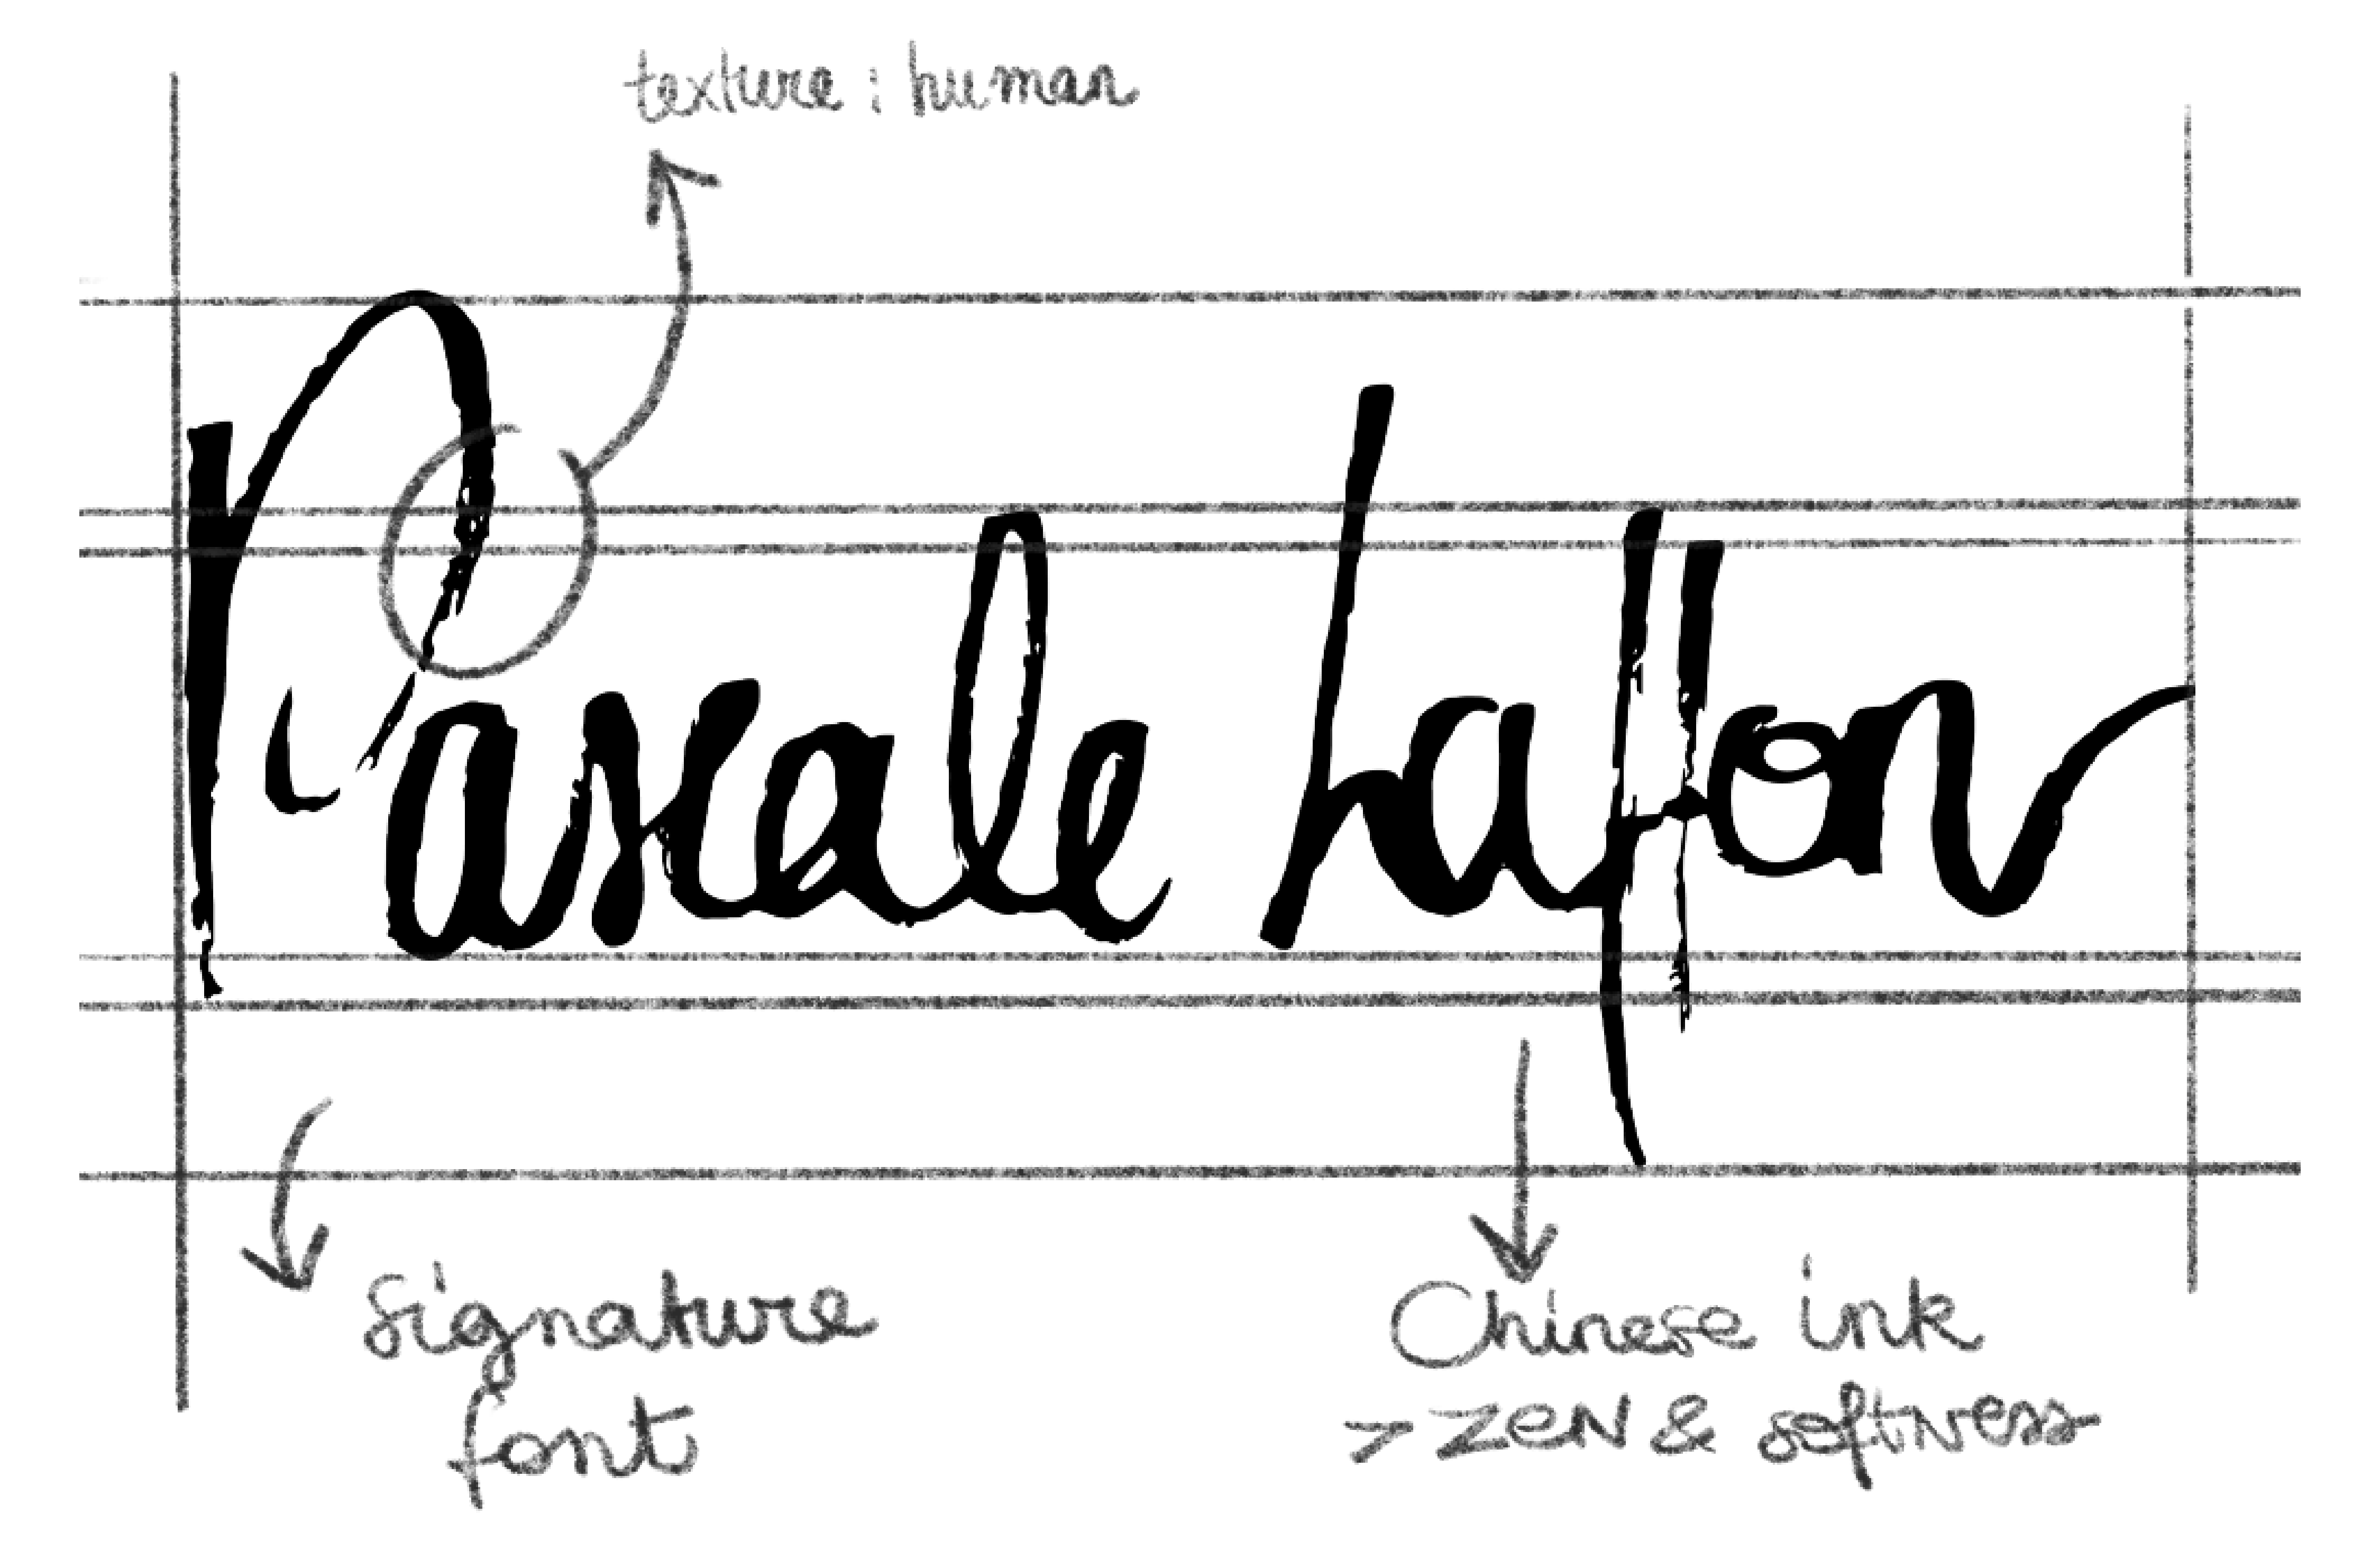 texture : human
Pascale Laffon
Signature
font
Chinese ink
> ZEN & softness